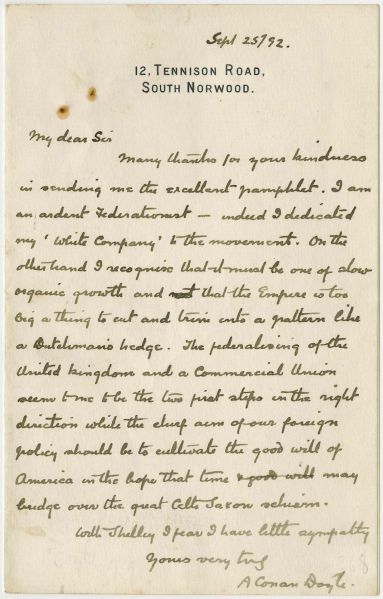 Sept 25/92.
12, TENNISON ROAD,
SOUTH NORWOOD.
My dear Sir
Many thanks for your kindness
in sending me the excellent pamphlet. I am
an ardent Federationist — indeed I dedicated
my 'White Company' to the movement. On the
other hand I recognise that it must be one of slow
organic growth and not that the Empire is too
big a thing to cut and trim into a pattern like
a Dutchman's hedge. The federalising of the
United Kingdom and a Commercial Union
seem to me to be the two first steps in the right
direction while the chief aim of our foreign
policy should be to cultivate the good will of
America in the hope that time & good will may
bridge over the great Celto Saxon schism.
With Shelley I fear I have little sympathy
Yours very truly
A Conan Doyle.